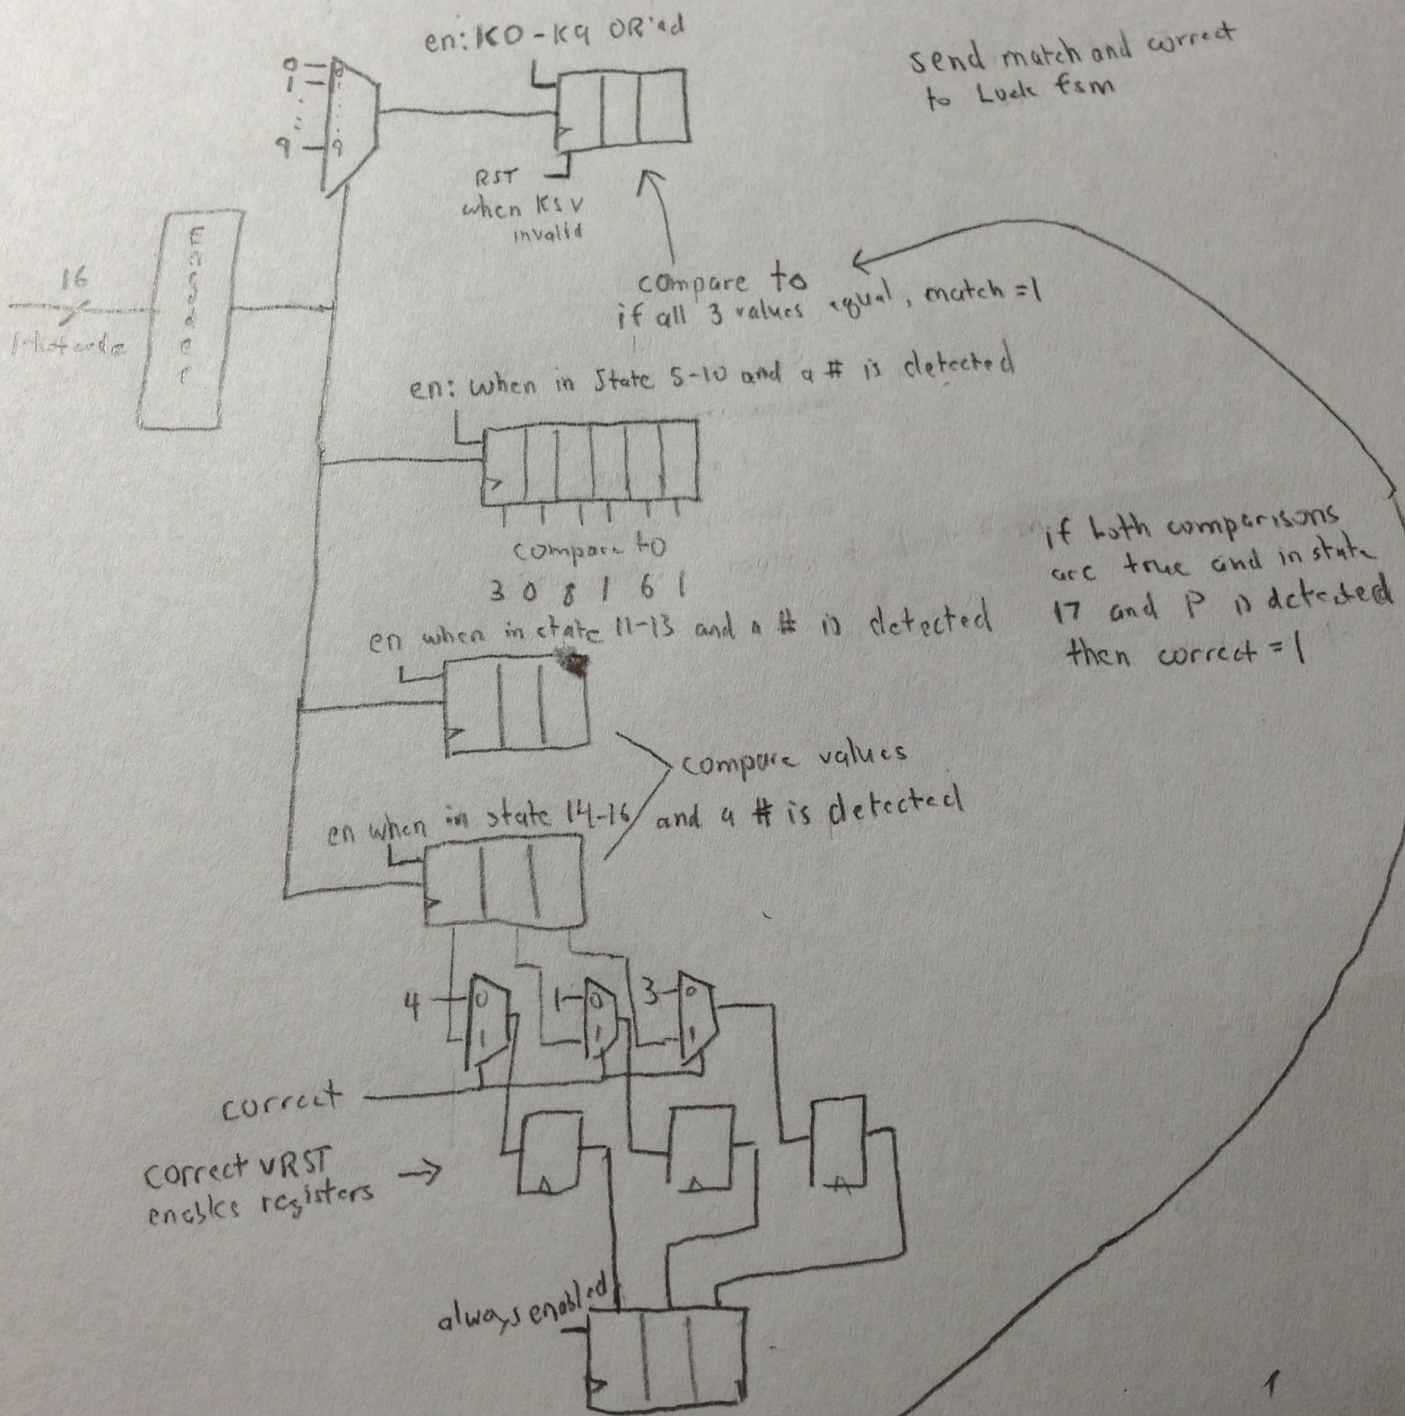 en: K0 - K9 OR'ed
send match and correct
to Lock fsm
0
1
9
0
9
RST
when KSV
invalid
Encoder
16
compare to
if all 3 values equal, match = 1
en: when in State 5-10 and a # is detected
compare to
3 0 8 1 6 1
if both comparisons
are true and in state
17 and P is detected
then correct = 1
en when in state 11-13 and a # is detected
compare values
en when in state 14-16 and a # is detected
4 0 1 0 3 0
1 1 1
correct
correct v RST
enables registers
always enabled
1